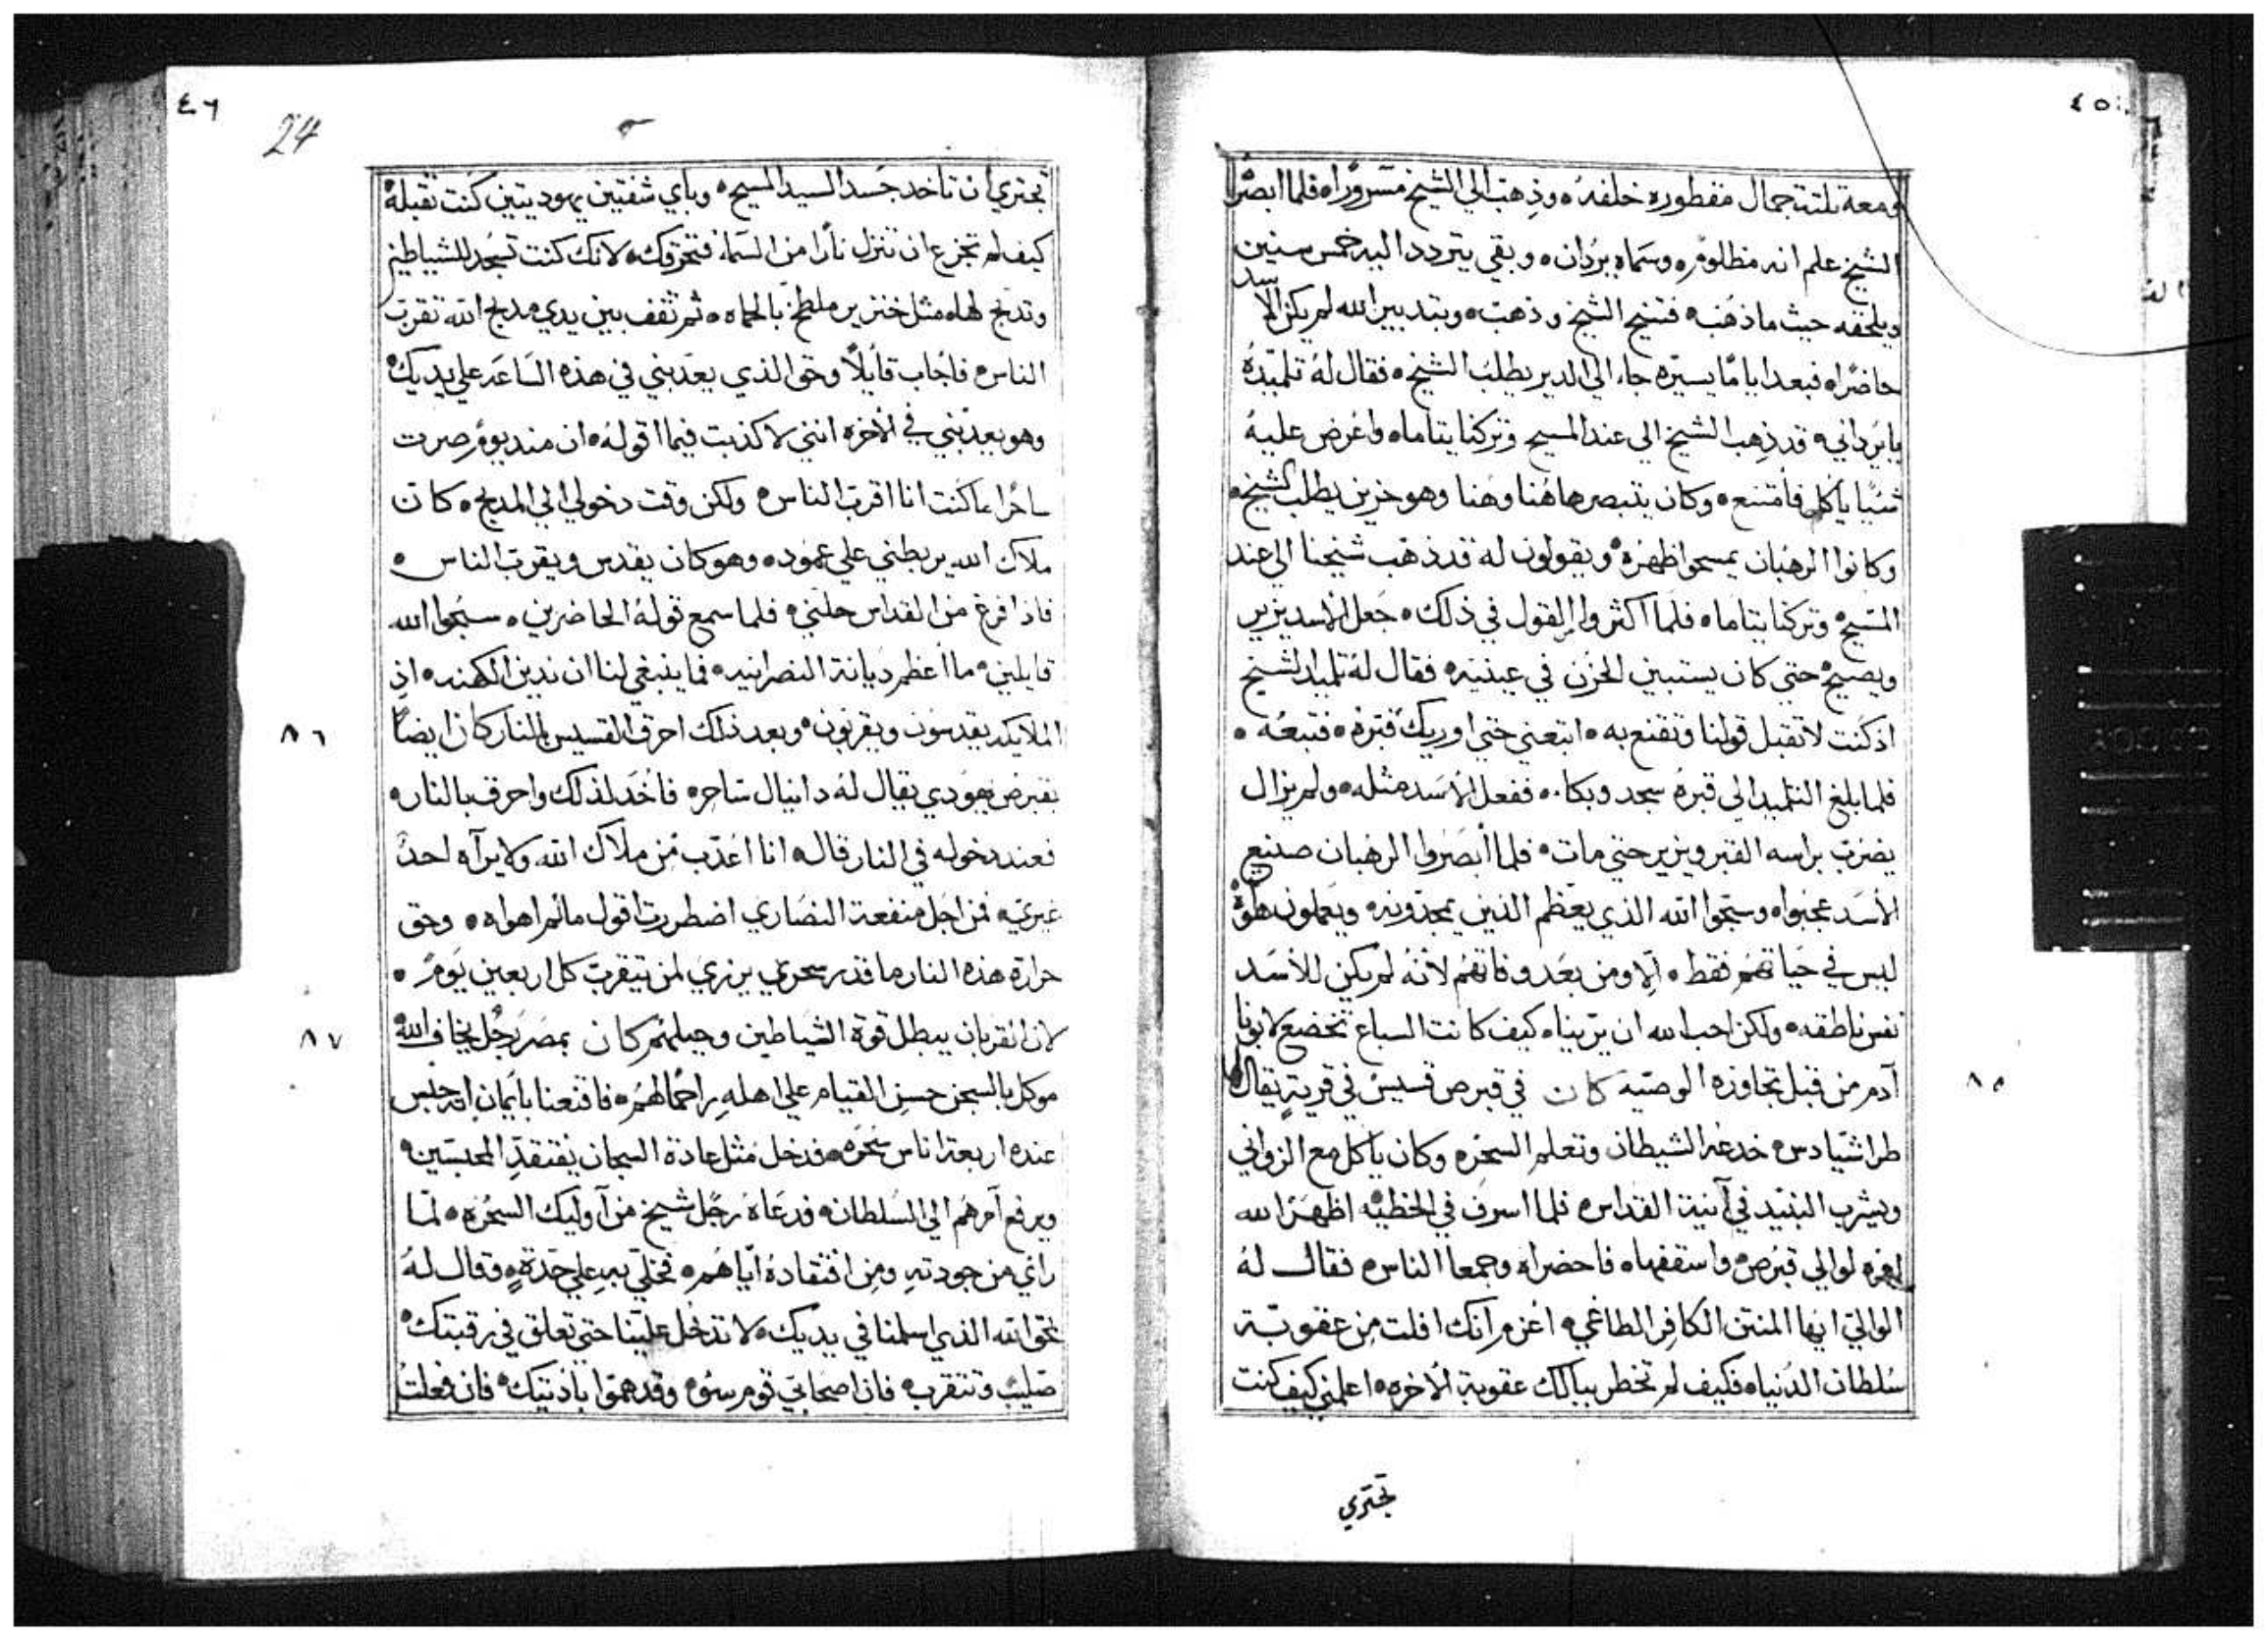 ٤٥
ومعه تلتة جمال مقطوره خلفه ٥ وذهب الي الشيخ مسرورًا ٥ فلما ابصرا
الشيخ علم انه مظلوم ٥ وسماه يردان ٥ وبقي يتردد اليه خمس سنين
ويلحقه حيث ما ذهب ٥ فتنيح الشيخ وذهب ٥ وبتدبير الله لم يكن الاسد
حاضرًا ٥ فبعد ايامًا يسيره جاء الي الدير يطلب الشيخ ٥ فقال له تلميده
يا يرداني ٥ قد ذهب الشيخ الي عند المسيح وتركنا يتاما ٥ واعرض عليه
شيًا ياكل فامتنع ٥ وكان يتبصر هاهنا وهنا وهو حزين يطلب الشيخ ٥
وكانوا الرهبان يمسحوا ظهره ٥ ويقولون له قد ذهب شيخنا الي عند
المسيح ٥ وتركنا يتاما ٥ فلما اكثروا القول في ذلك ٥ جعل الاسد يزير
ويصيح ٥ حتي كان يستبين الحزن في عينيه ٥ فقال له تلميد الشيخ
اذ كنت لا تقبل قولنا وتقنع به ٥ اتبعني حتي اوريك قبره ٥ فتبعه ٥
فلما بلغ التلميد الي قبره سجد وبكا ٥ ففعل الاسد مثله ٥ ولم يزال
يضرب براسه القبر ويزير حتي مات ٥ فلما ابصروا الرهبان صنيع
الأسد عجبوا ٥ وسبحوا الله الذي يعظم الذين يمجدونه ٥ ويعملون هواه
ليس في حياتهم فقط ٥ الا ومن بعد وفاتهم لانه لم يكن للأسد
نفس ناطقه ٥ ولكن احب الله ان يرينا ٥ كيف كانت السباع تخضع لابونا
آدم من قبل تجاوزه الوصيه كان في قبرص قسيس في قريةٍ يقال لها
٨٥
طراشيادس ٥ خدعه الشيطان وتعلم السحر ٥ وكان ياكل مع الزواني
ويشرب النبيد في آنية القداس ٥ فلما اسرف في الخطيه ٥ اظهر الله
امره لوالي قبرص ٥ واسقفها ٥ فاحضراه وجمعا الناس ٥ فقال له
الوالي ايها المنتن الكافر الطاغي ٥ اعزم انك افلت من عقوبة
سُلطان الدنيا ٥ فكيف لم تخطر ببالك عقوبة الأخره ٥ اعلمني كيف كنت
تجتري
٤٦
24
تجتري ان تاخد جسد السيد المسيح ٥ وباي شفتين يهوديتين كنت تقبله ٥
كيف لم تجزع ان تنزل نارًا من السماء فتحرقك ٥ لانك كنت تسجد للشياطين
وتدبح لها ٥ مثل خنزير ملطخ بالحماه ٥ ثم تقف بين يدي مدبح الله تقرب
الناس ٥ فاجاب قايلًا وحق الذي يعدبني في هذه الساعه علي يديك ٥
وهو يعدبني في الأخره انني لا كذبت فيما اقوله ٥ ان مند يوم صرت
ساحرًا ما كنت انا اقرب الناس ٥ ولكن وقت دخولي الي المدبح ٥ كان
ملاك الله يربطني علي عمود ٥ وهو كان يقدس ويقرب الناس ٥
فاذا فرغ من القداس حلني ٥ فلما سمع قوله الحاضرين ٥ سبحوا الله
قايلين ٥ ما اعظم ديانة النصرانيه ٥ فما ينبغي لنا ان ندين الكهنه ٥ اذ
الملايكه يقدسون ويقربون ٥ وبعد ذلك احرق القسيس بالنار كان ايضًا
٨٦
بقبرص يهودي يقال له دانيال ساحر ٥ فاخد لذلك واحرق بالنار ٥
فعند دخوله في النار قال ٥ انا اعدب من ملاك الله ولا يرآه احد
غيري ٥ فمن اجل منفعة النصاري اضطررت اقول ما لم اهواه ٥ وحق
حرارة هذه النار ما قدر سحري يزري لمن يتقرب كل اربعين يوم ٥
لان القربان يبطل قوة الشياطين وحيلهم كان بمصر رجل يخاف الله
٨٧
موكل بالسجن حسن القيام علي اهله راحمًا لهم ٥ فاقنعنا بأيمان انه حبس
عنده اربعة اناس سحره ٥ فدخل مثل عادة السجان يفتقد المحبسين ٥
ويرفع آمرهم الي السلطان ٥ فدعاه رجل شيخ من آوليك السحره ٥ لما
رائي من جودته ومن افتقاده اياهم ٥ فخلي به علي حدة ٥ وقال له
بحق الله الذي اسلمنا في يديك ٥ لا تدخل علينا حتي تعلق في رقبتك ٥
صليب وتتقرب ٥ فان اصحابي قوم سوء ٥ وقد همّوا باذيتك ٥ فان فعلت